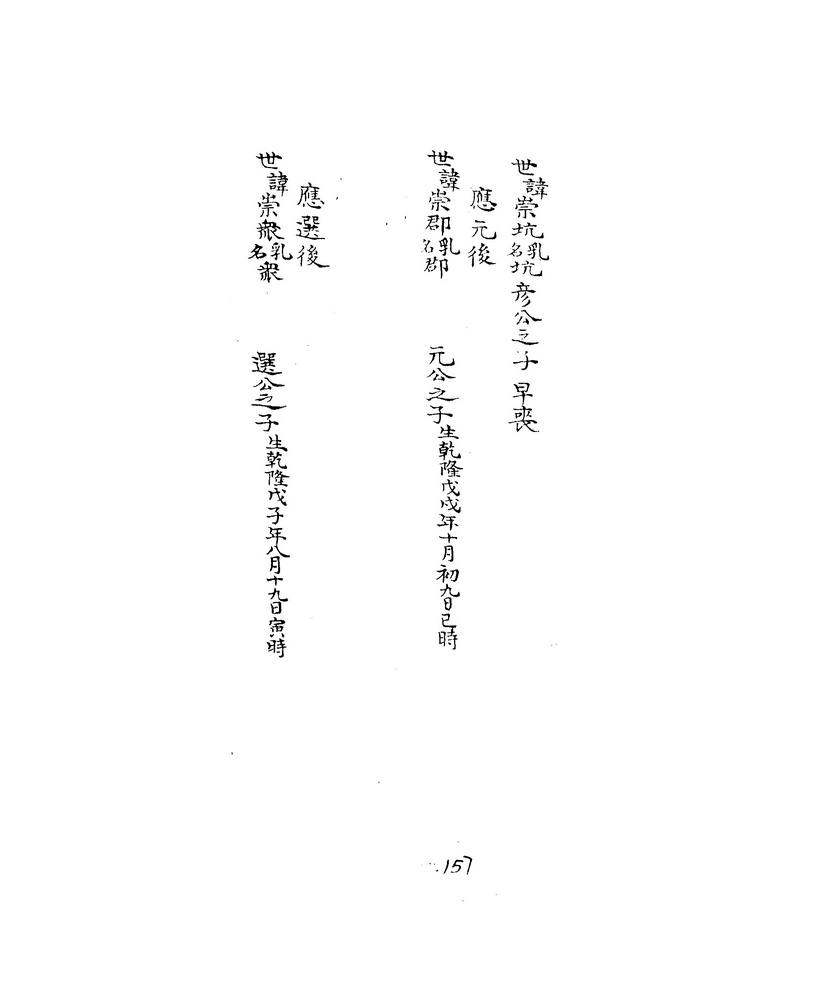 世諱崇坑乳名坑彦公之子早喪
應元後
世諱崇郡乳名郡 元公之子生乾隆戊戌年十月初九日巳時
應選後
世諱崇衆乳名衆 選公之子生乾隆戊子年八月十九日寅時
157